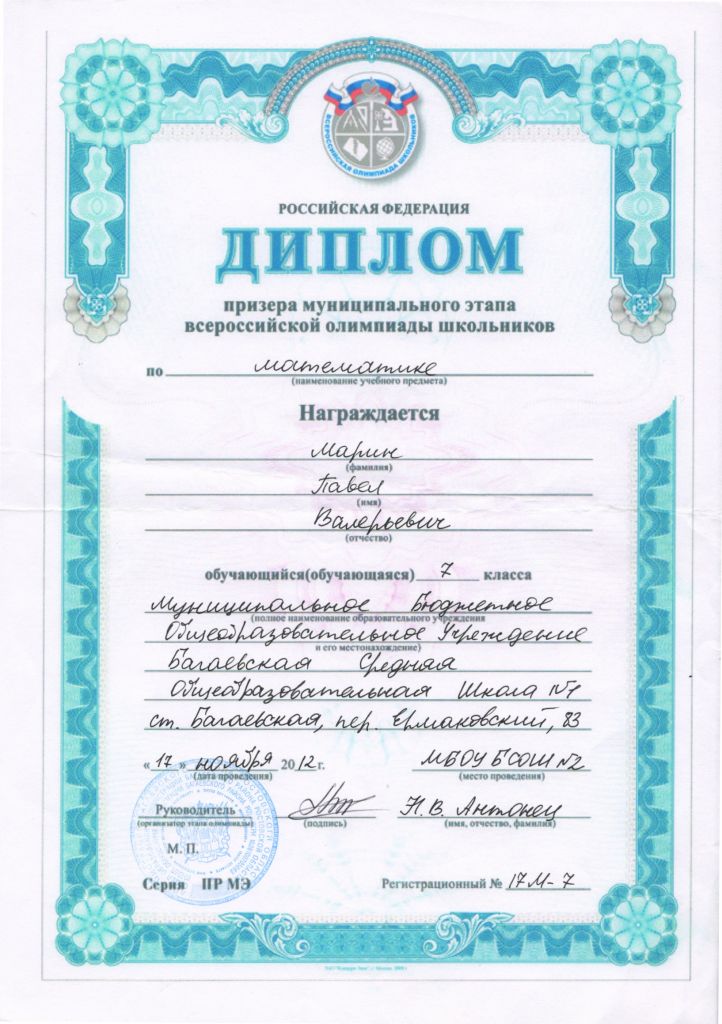 ВСЕРОССИЙСКАЯ ОЛИМПИАДА ШКОЛЬНИКОВ
РОССИЙСКАЯ ФЕДЕРАЦИЯ
ДИПЛОМ
призера муниципального этапа
всероссийской олимпиады школьников
по математике
(наименование учебного предмета)
Награждается
Марин
(фамилия)
Павел
(имя)
Валерьевич
(отчество)
обучающийся(обучающаяся) 7 класса
Муниципальное Бюджетное
(полное наименование образовательного учреждения
Общеобразовательное Учреждение
и его местонахождение)
Багаевская Средняя
Общеобразовательная Школа №1
ст. Багаевская, пер. Ермаковский, 83
« 17 » ноября 2012 г. МБОУ БСОШ №2
(дата проведения) (место проведения)
Руководитель Н.В. Антонец
(организатор этапа олимпиады) (подпись) (имя, отчество, фамилия)
М. П.
Серия ПР МЭ Регистрационный № 17М-7